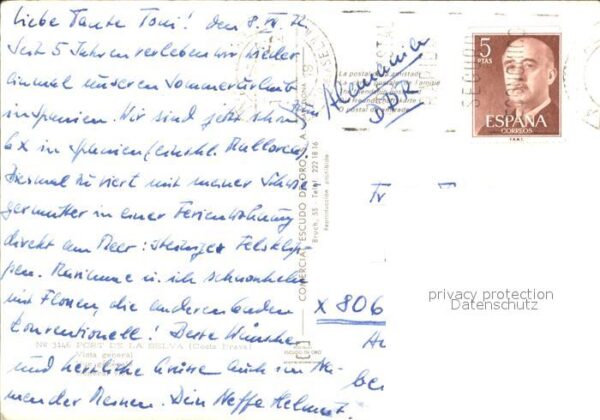 Liebe Tante Toni! den 8. VII. 72
Seit 5 Jahren verleben wir wieder
einmal unseren Sommerurlaub
in Spanien. Wir sind jetzt schon zum
6 x in Spanien (einschl. Mallorca).
Diesmal zu viert mit meiner Schwie
germutter in einer Ferienwohnung
direkt am Meer: steiniger Felsklip-
pen. Marianne u. ich schnorcheln
mit Flossen, die anderen baden
konventionell! Beste Wünsche
und herzliche Grüsse auch im Na-
men der Meinen. Dein Neffe Helmut.
Nº 3146 PORT DE LA SELVA (Costa Brava)
Vista general
COMERCIAL ESCUDO DE ORO, S.A.
Bruch, 55 - Teléf. 222 18 16
Reproducción prohibida
ESCUDO DE ORO
Alemania
DDR
5
PTAS
ESPAÑA
CORREOS
F.N.M.T.
Fr
X 806
bei
privacy protection
Datenschutz